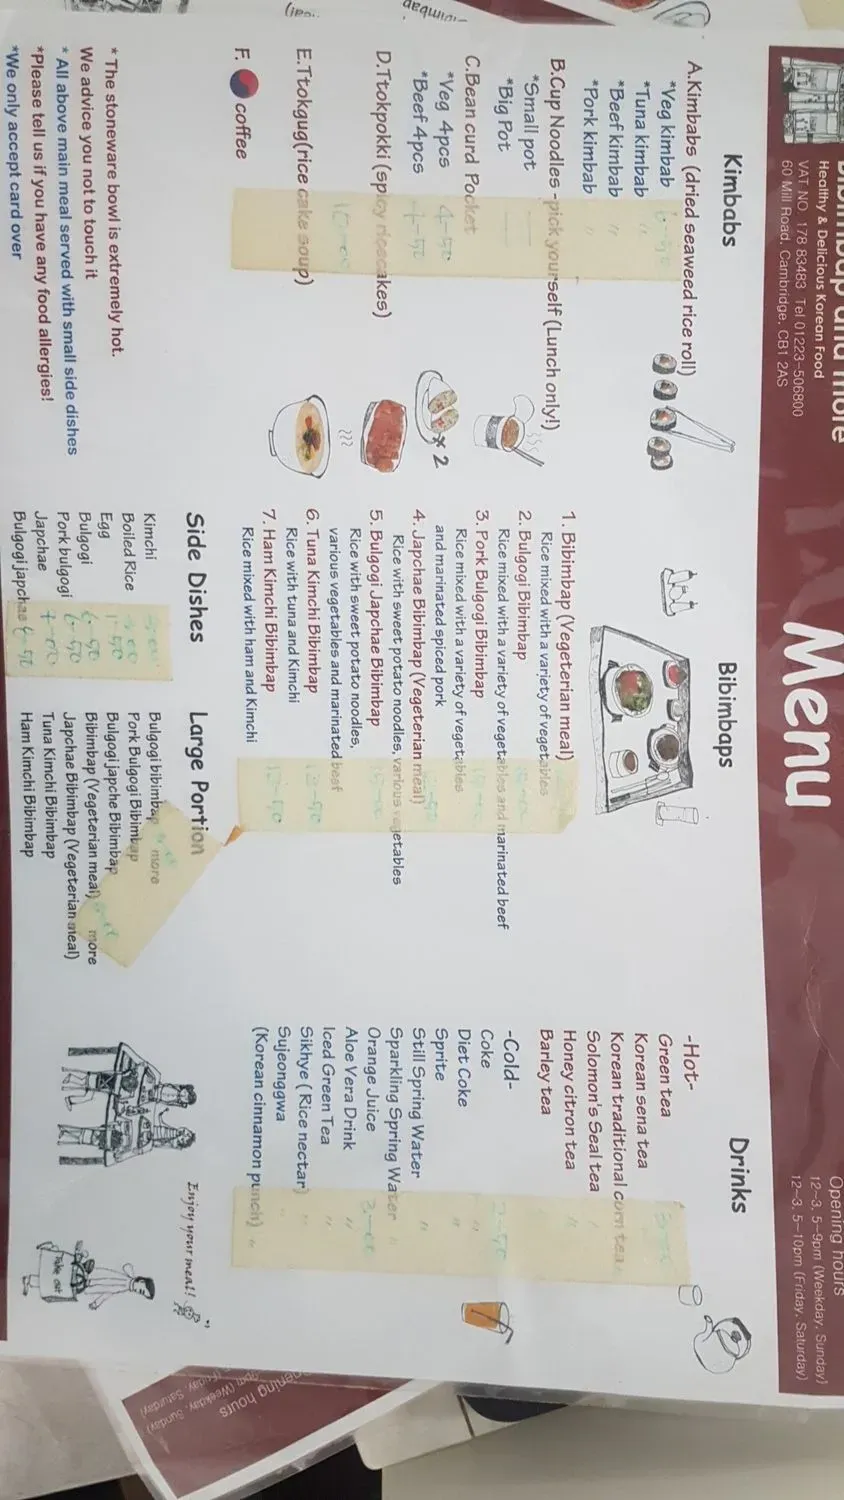 Bibimbap and more
Healthy & Delicious Korean Food
VAT NO. 178 83483 Tel 01223-506800
60 Mill Road, Cambridge, CB1 2AS
Menu
Opening hours
12-3, 5-9pm (Weekday, Sunday)
12-3, 5-10pm (Friday, Saturday)
Kimbabs
A.Kimbabs (dried seaweed rice roll)
*Veg kimbab
*Tuna kimbab "
*Beef kimbab "
*Pork kimbab "
B.Cup Noodles -pick yourself (Lunch only!)
*Small pot
*Big Pot
C.Bean curd Pocket
*Veg 4pcs 4-50
*Beef 4pcs 4-50
× 2
D.Ttokpokki (spicy ricecakes)
10-00
E.Ttokgug(rice cake soup)
F. coffee
* The stoneware bowl is extremely hot.
We advice you not to touch it
* All above main meal served with small side dishes
*Please tell us if you have any food allergies!
*We only accept card over
Bibimbaps
1. Bibimbap (Vegeterian meal)
Rice mixed with a variety of vegetables
2. Bulgogi Bibimbap
Rice mixed with a variety of vegetables and marinated beef
3. Pork Bulgogi Bibimbap
Rice mixed with a variety of vegetables
and marinated spiced pork
4. Japchae Bibimbap (Vegeterian meal)
Rice with sweet potato noodles, various vegetables
5. Bulgogi Japchae Bibimbap
Rice with sweet potato noodles,
various vegetables and marinated beef
6. Tuna Kimchi Bibimbap
Rice with tuna and Kimchi
7. Ham Kimchi Bibimbap 12-50
Rice mixed with ham and Kimchi
Side Dishes
Kimchi
Boiled Rice
Egg 1-50
Bulgogi 6-50
Pork bulgogi 6-50
Japchae
Bulgogi japchae 6-50
Large Portion
Bulgogi bibimbap more
Pork Bulgogi Bibimbap
Bulgogi japche Bibimbap
Bibimbap (Vegeterian meal) more
Japchae Bibimbap (Vegeterian meal)
Tuna Kimchi Bibimbap
Ham Kimchi Bibimbap
Drinks
-Hot-
Green tea
Korean sena tea
Korean traditional corn tea
Solomon's Seal tea
Honey citron tea "
Barley tea
-Cold-
Coke
Diet Coke "
Sprite "
Still Spring Water "
Sparkling Spring Water "
Orange Juice 3-00
Aloe Vera Drink "
Iced Green Tea "
Sikhye ( Rice nectar) "
Sujeonggwa
(Korean cinnamon punch) "
Enjoy your meal!
Take out